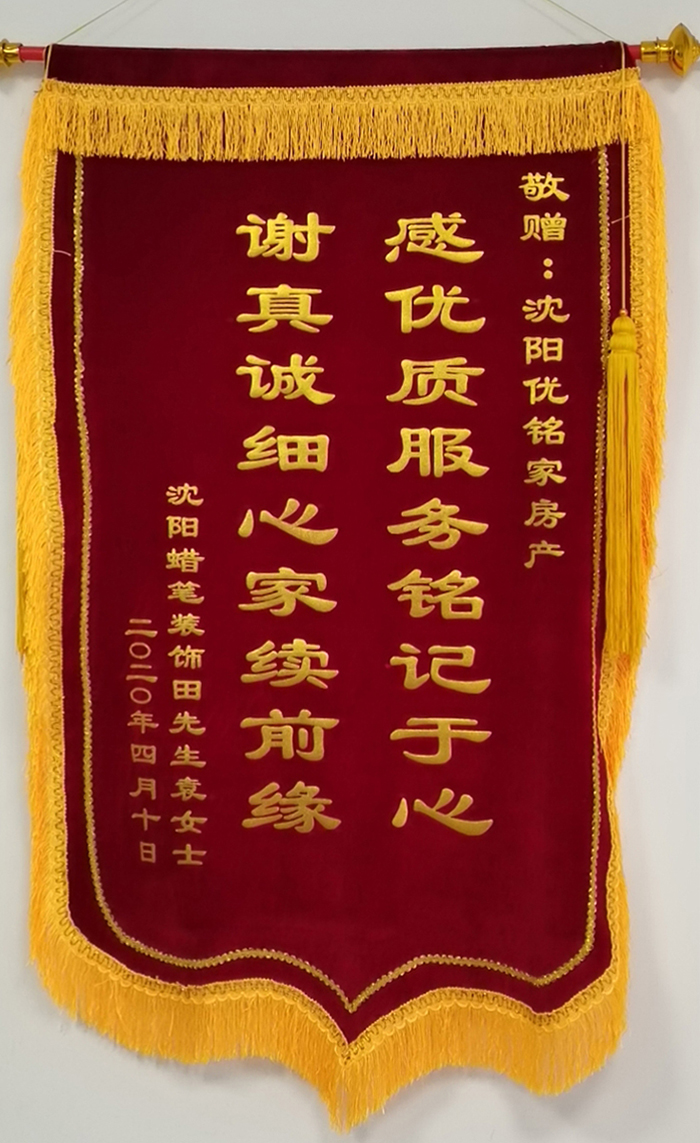 敬赠：沈阳优铭家房产
感优质服务铭记于心
谢真诚细心家续前缘
沈阳蜡笔装饰田先生袁女士
二〇二〇年四月十日